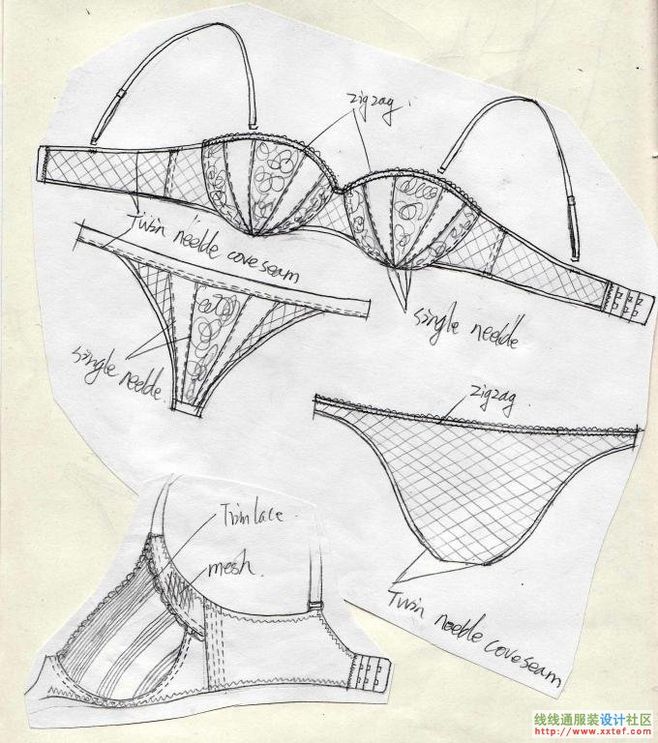 zigzag
Twin needle coveseam
single needle
single needle
zigzag
Trim lace
mesh
Twin needle coveseam
线线通服装设计社区
http://www.xxtef.com